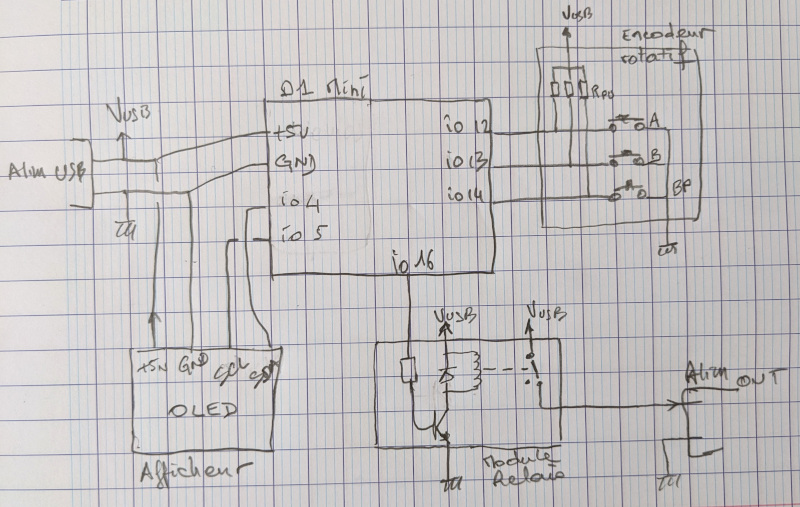 VUSB
Encodeur
rotatif
D1 Mini
RPU
VUSB
+5V
io 12
A
Alim USB
GND
io 13
B
io 4
io 14
BP
io 5
io 16
VUSB
VUSB
+5V GND SCL
OLED
Alim OUT
Afficheur
Module
Relais